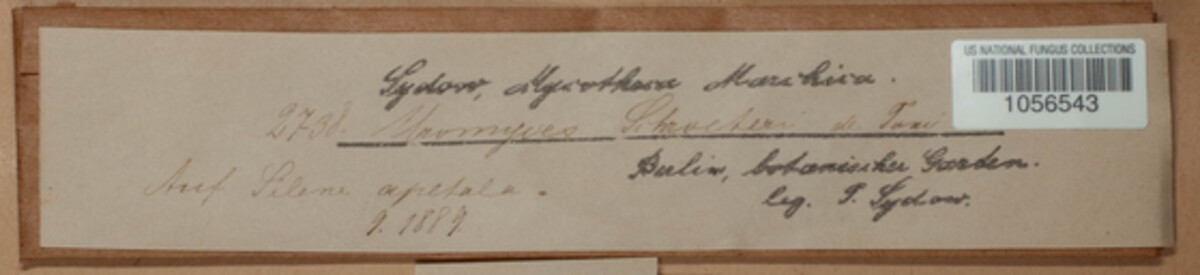 US NATIONAL FUNGUS COLLECTIONS
1056543
Sydow, Mycotheca Marchica.
2738. Uromyces Schroeteri de Toni
Auf Silene apetala.
9. 1889.
Berlin, botanischer Garten.
leg. P. Sydow.